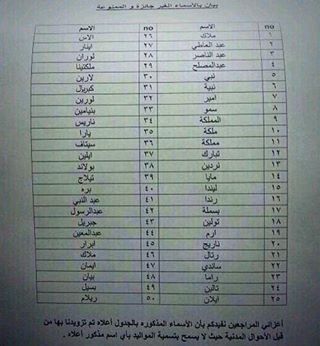 بيان بالأسماء الغير جائزة و الممنوعة
no الاسم no الاسم
١ ملاك ٢٦ الاس
٢ عبد العاطي ٢٧ ايتار
٣ عبد الناصر ٢٨ لوران
٤ عبدالمصلح ٢٩ ملكتينا
٥ نبي ٣٠ لارين
٦ نبية ٣١ كبريال
٧ امير ٣٢ لورين
٨ سمو ٣٣ بنيامين
٩ المملكة ٣٤ ناريس
١٠ ملكة ٣٥ يارا
١١ مملكة ٣٦ سيتاف
١٢ تبارك ٣٧ ايلين
١٣ نردين ٣٨ بولاند
١٤ مايا ٣٩ تيلاج
١٥ ليندا ٤٠ بره
١٦ رندا ٤١ عبد النبي
١٧ بسملة ٤٢ عبدالرسول
١٨ تولين ٤٣ جبريل
١٩ ارم ٤٤ عبدالمعين
٢٠ ناريج ٤٥ ابرار
٢١ رتال ٤٦ ملاك
٢٢ ساندي ٤٧ ايمان
٢٣ راما ٤٨ بيان
٢٤ تالين ٤٩ بسيل
٢٥ ايلان ٥٠ ريلام
أعزائي المراجعين نفيدكم بأن الأسماء المذكوره بالجدول أعلاه تم تزويدنا بها من
قبل الأحوال المدنية حيث لا يسمح بتسمية المواليد بأي اسم مذكور أعلاه .